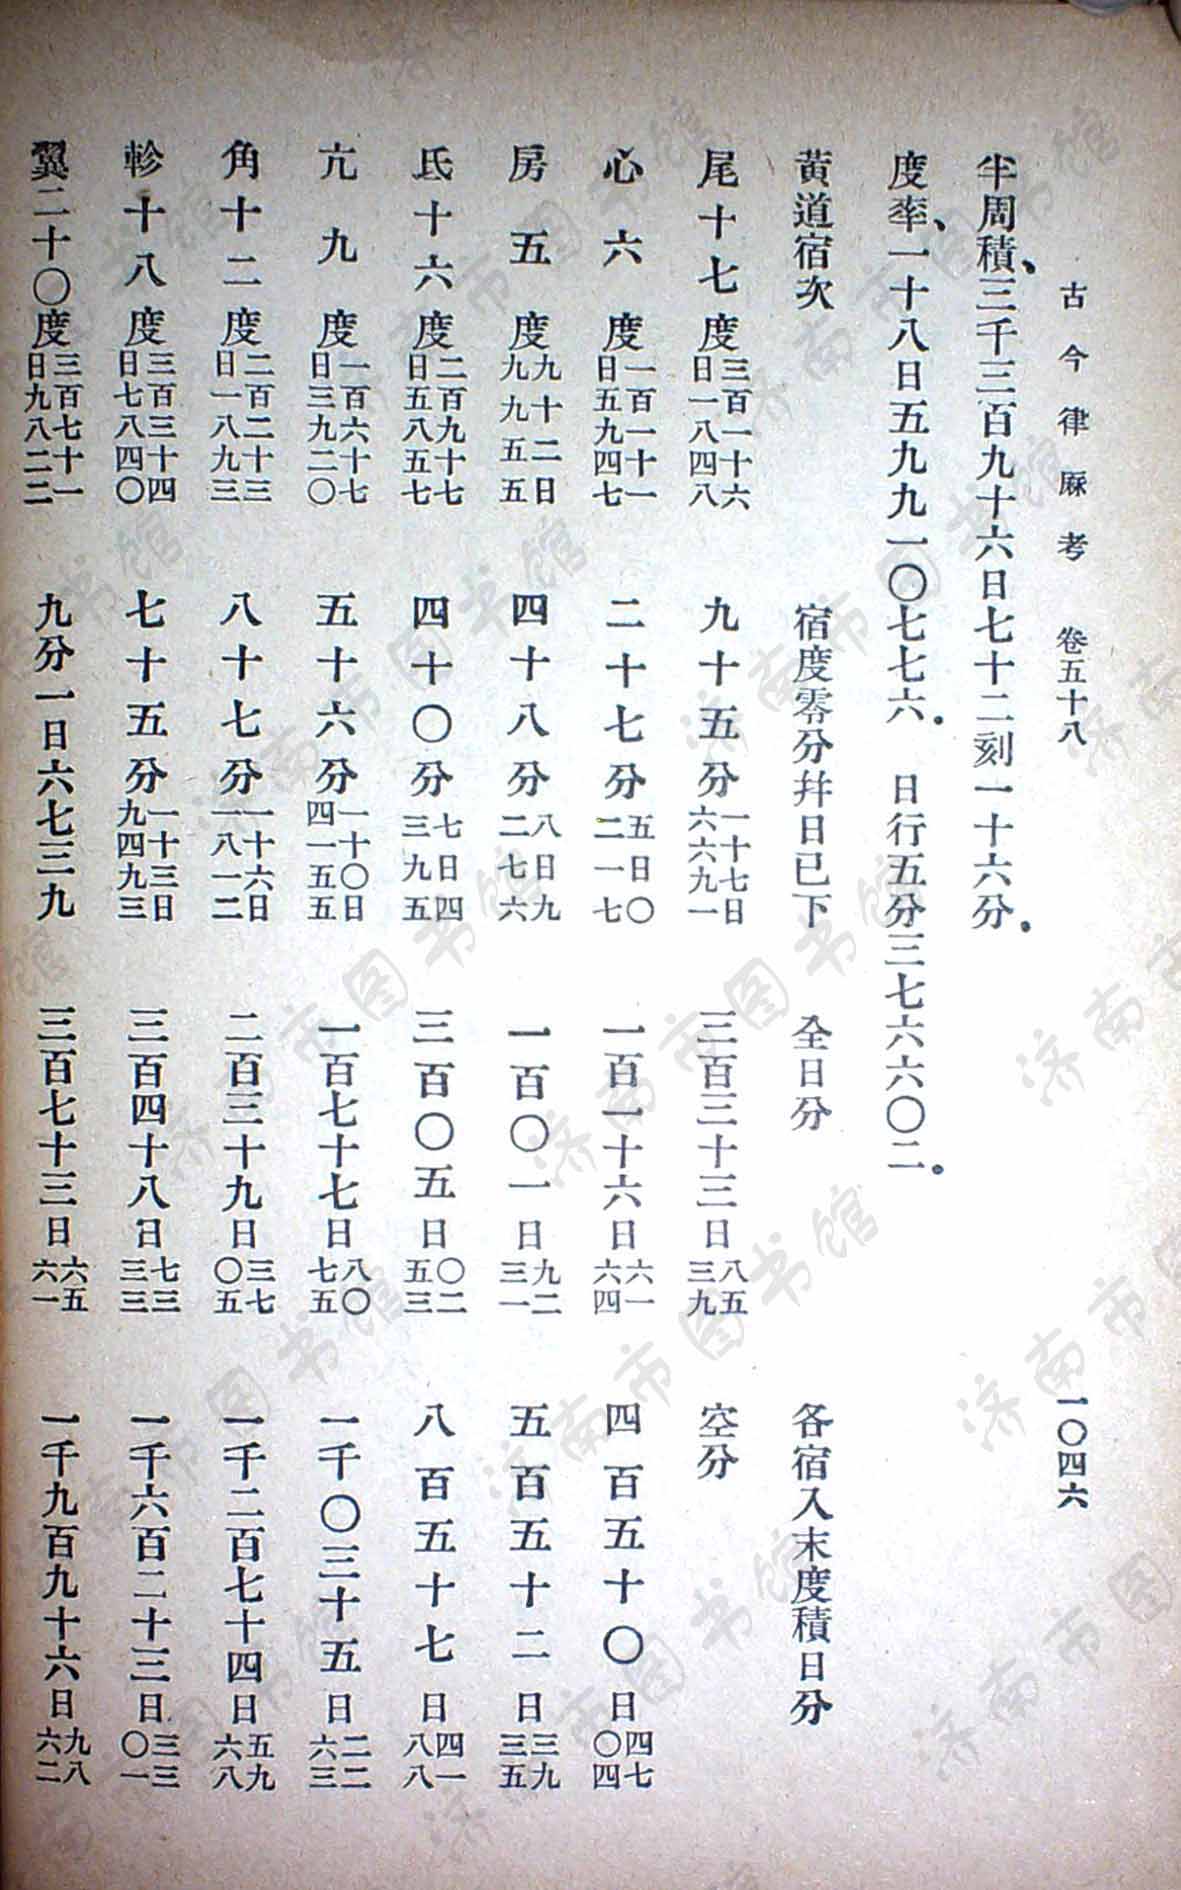 古今律厤考 卷五十八 一〇四六
半周積、三千三百九十六日七十二刻一十六分。
度率、一十八日五九九一〇七七六。 日行五分三七六六〇二。
黄道宿次 宿度零分幷日已下 全日分 各宿入末度積日分
尾十七度三百一十六日一八四八 九十五分一十七日六六九一 三百三十三日八五三九 空分
心六度一百一十一日五九四七 二十七分五日〇二一七 一百一十六日六一六四 四百五十〇日四七〇四
房五度九十二日九九五五 四十八分八日九二七六 一百〇一日九二三一 五百五十二日三九三五
氐十六度二百九十七日五八五七 四十〇分七日四三九五 三百〇五日〇二五三 八百五十七日四一八八
亢九度一百六十七日三九二〇 五十六分一十〇日四一五五 一百七十七日八〇七五 一千〇三十五日二二六三
角十二度二百二十三日一八九三 八十七分一十六日一八一二 二百三十九日三七〇五 一千二百七十四日五九六八
軫十八度三百三十四日七八四〇 七十五分一十三日九四九三 三百四十八日七三三三 一千六百二十三日三三〇一
翼二十〇度三百七十一日九八二二 九分一日六七三九 三百七十三日六五六一 一千九百九十六日九八六二
济南市图书馆